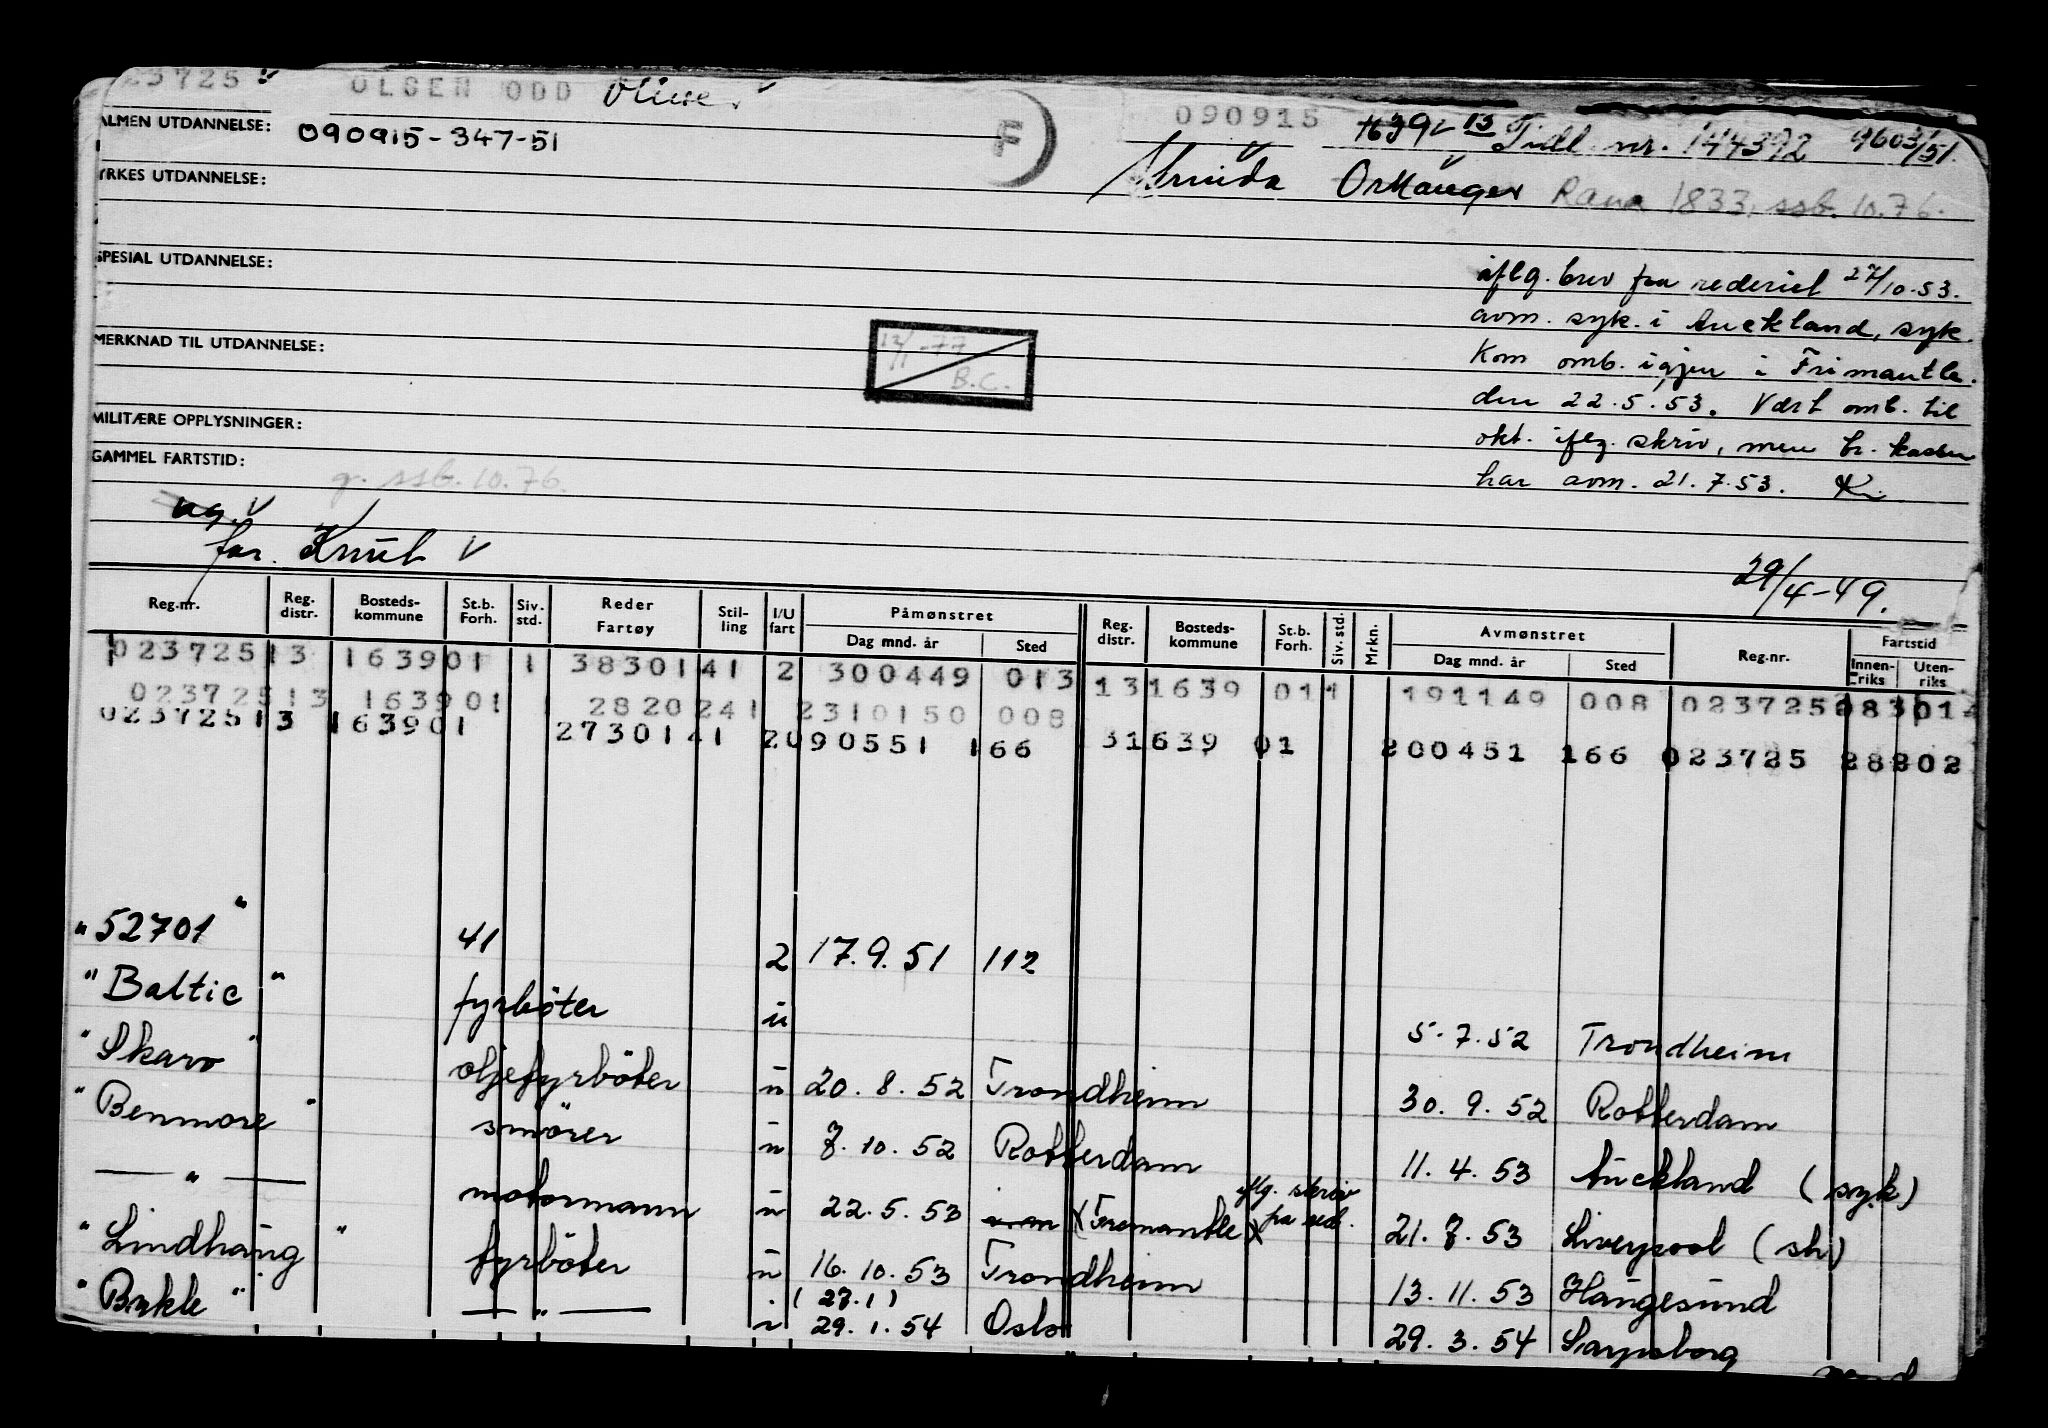 23725 OLSEN ODD Oliver 090915 1639 13 Tidl. nr. 144392
ALMEN UTDANNELSE: 090915-347-51 F Strinda Orkanger Rana 1833, ssb. 10.76.
YRKES UTDANNELSE:
SPESIAL UTDANNELSE:
iflg. brev fra rederiet 27/10.53.
avm. syk. i Auckland, syk.
MERKNAD TIL UTDANNELSE: 12/1-77 B.C.
Kom omb. igjen i Frimantle.
den 22.5.53. Vært omb. til
MILITÆRE OPPLYSNINGER:
okt. iflg. skriv, men tr. kassen
GAMMEL FARTSTID: g. ssb. 10.76.
har avm. 21.7.53. K.
ug.
far. Knut
29/4-49.
Reg.nr. Reg. distr. Bosteds-kommune St.b. Forh. Siv. std. Reder Fartøy Stil-ling I/U fart Påmønstret Dag mnd. år Sted Reg. distr. Bosteds-kommune St.b. Forh. Siv. std. Mrkn. Avmønstret Dag mnd. år Sted Reg.nr. Fartstid Innen-riks Uten-riks
023725 13 1639 01 1 3830141 2 300449 013 13 1639 011 191149 008 023725
023725 13 1639 01 2820241 2310150 008
023725 13 1639 01 2730141 2090551 166 31639 01 200451 166 023725 28202
"52701" 41 2 17.9.51 112
"Baltic" fyrböter u 5.7.52 Trondheim
"Skaro" oljefyrböter u 20.8.52 Trondheim 30.9.52 Rotterdam
"Benmore" smörer u 7.10.52 Rotterdam 11.4.53 Auckland (syk)
— " — motormann u 22.5.53 x Fremantle x iflg. skriv fra red. 21.7.53 Liverpool (sh)
"Lindhaug" fyrböter u 16.10.53 Trondheim 13.11.53 Haugesund
"Bykle" — " — (27.1) 29.1.54 Oslo 29.3.54 Sarpsborg